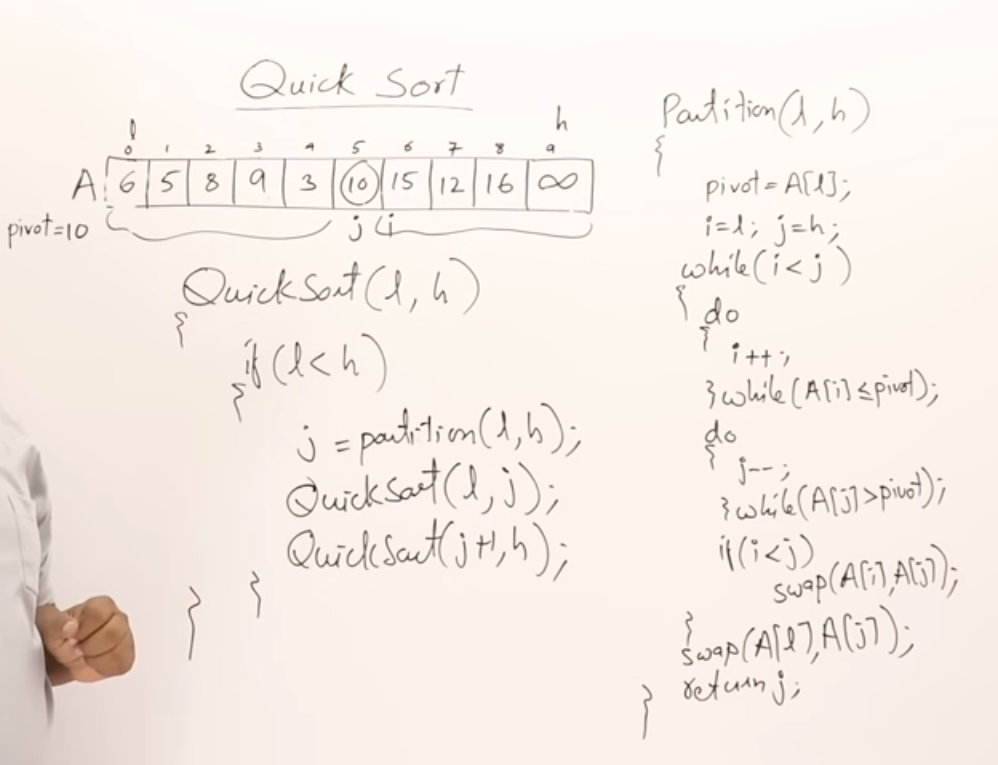 Quick Sort
l h
0 1 2 3 4 5 6 7 8 9
A 6 5 8 9 3 10 15 12 16 ∞
pivot=10 j i
QuickSort(l, h)
{
if (l<h)
{
j = partition(l,h);
QuickSort(l, j);
QuickSort(j+1,h);
}
}
Partition(l,h)
{
pivot=A[l];
i=l; j=h;
while(i<j)
{ do
{
i++;
}while(A[i]≤pivot);
do
{ j--;
}while(A[j]>pivot);
if(i<j)
swap(A[i],A[j]);
}
swap(A[l],A[j]);
return j;
}